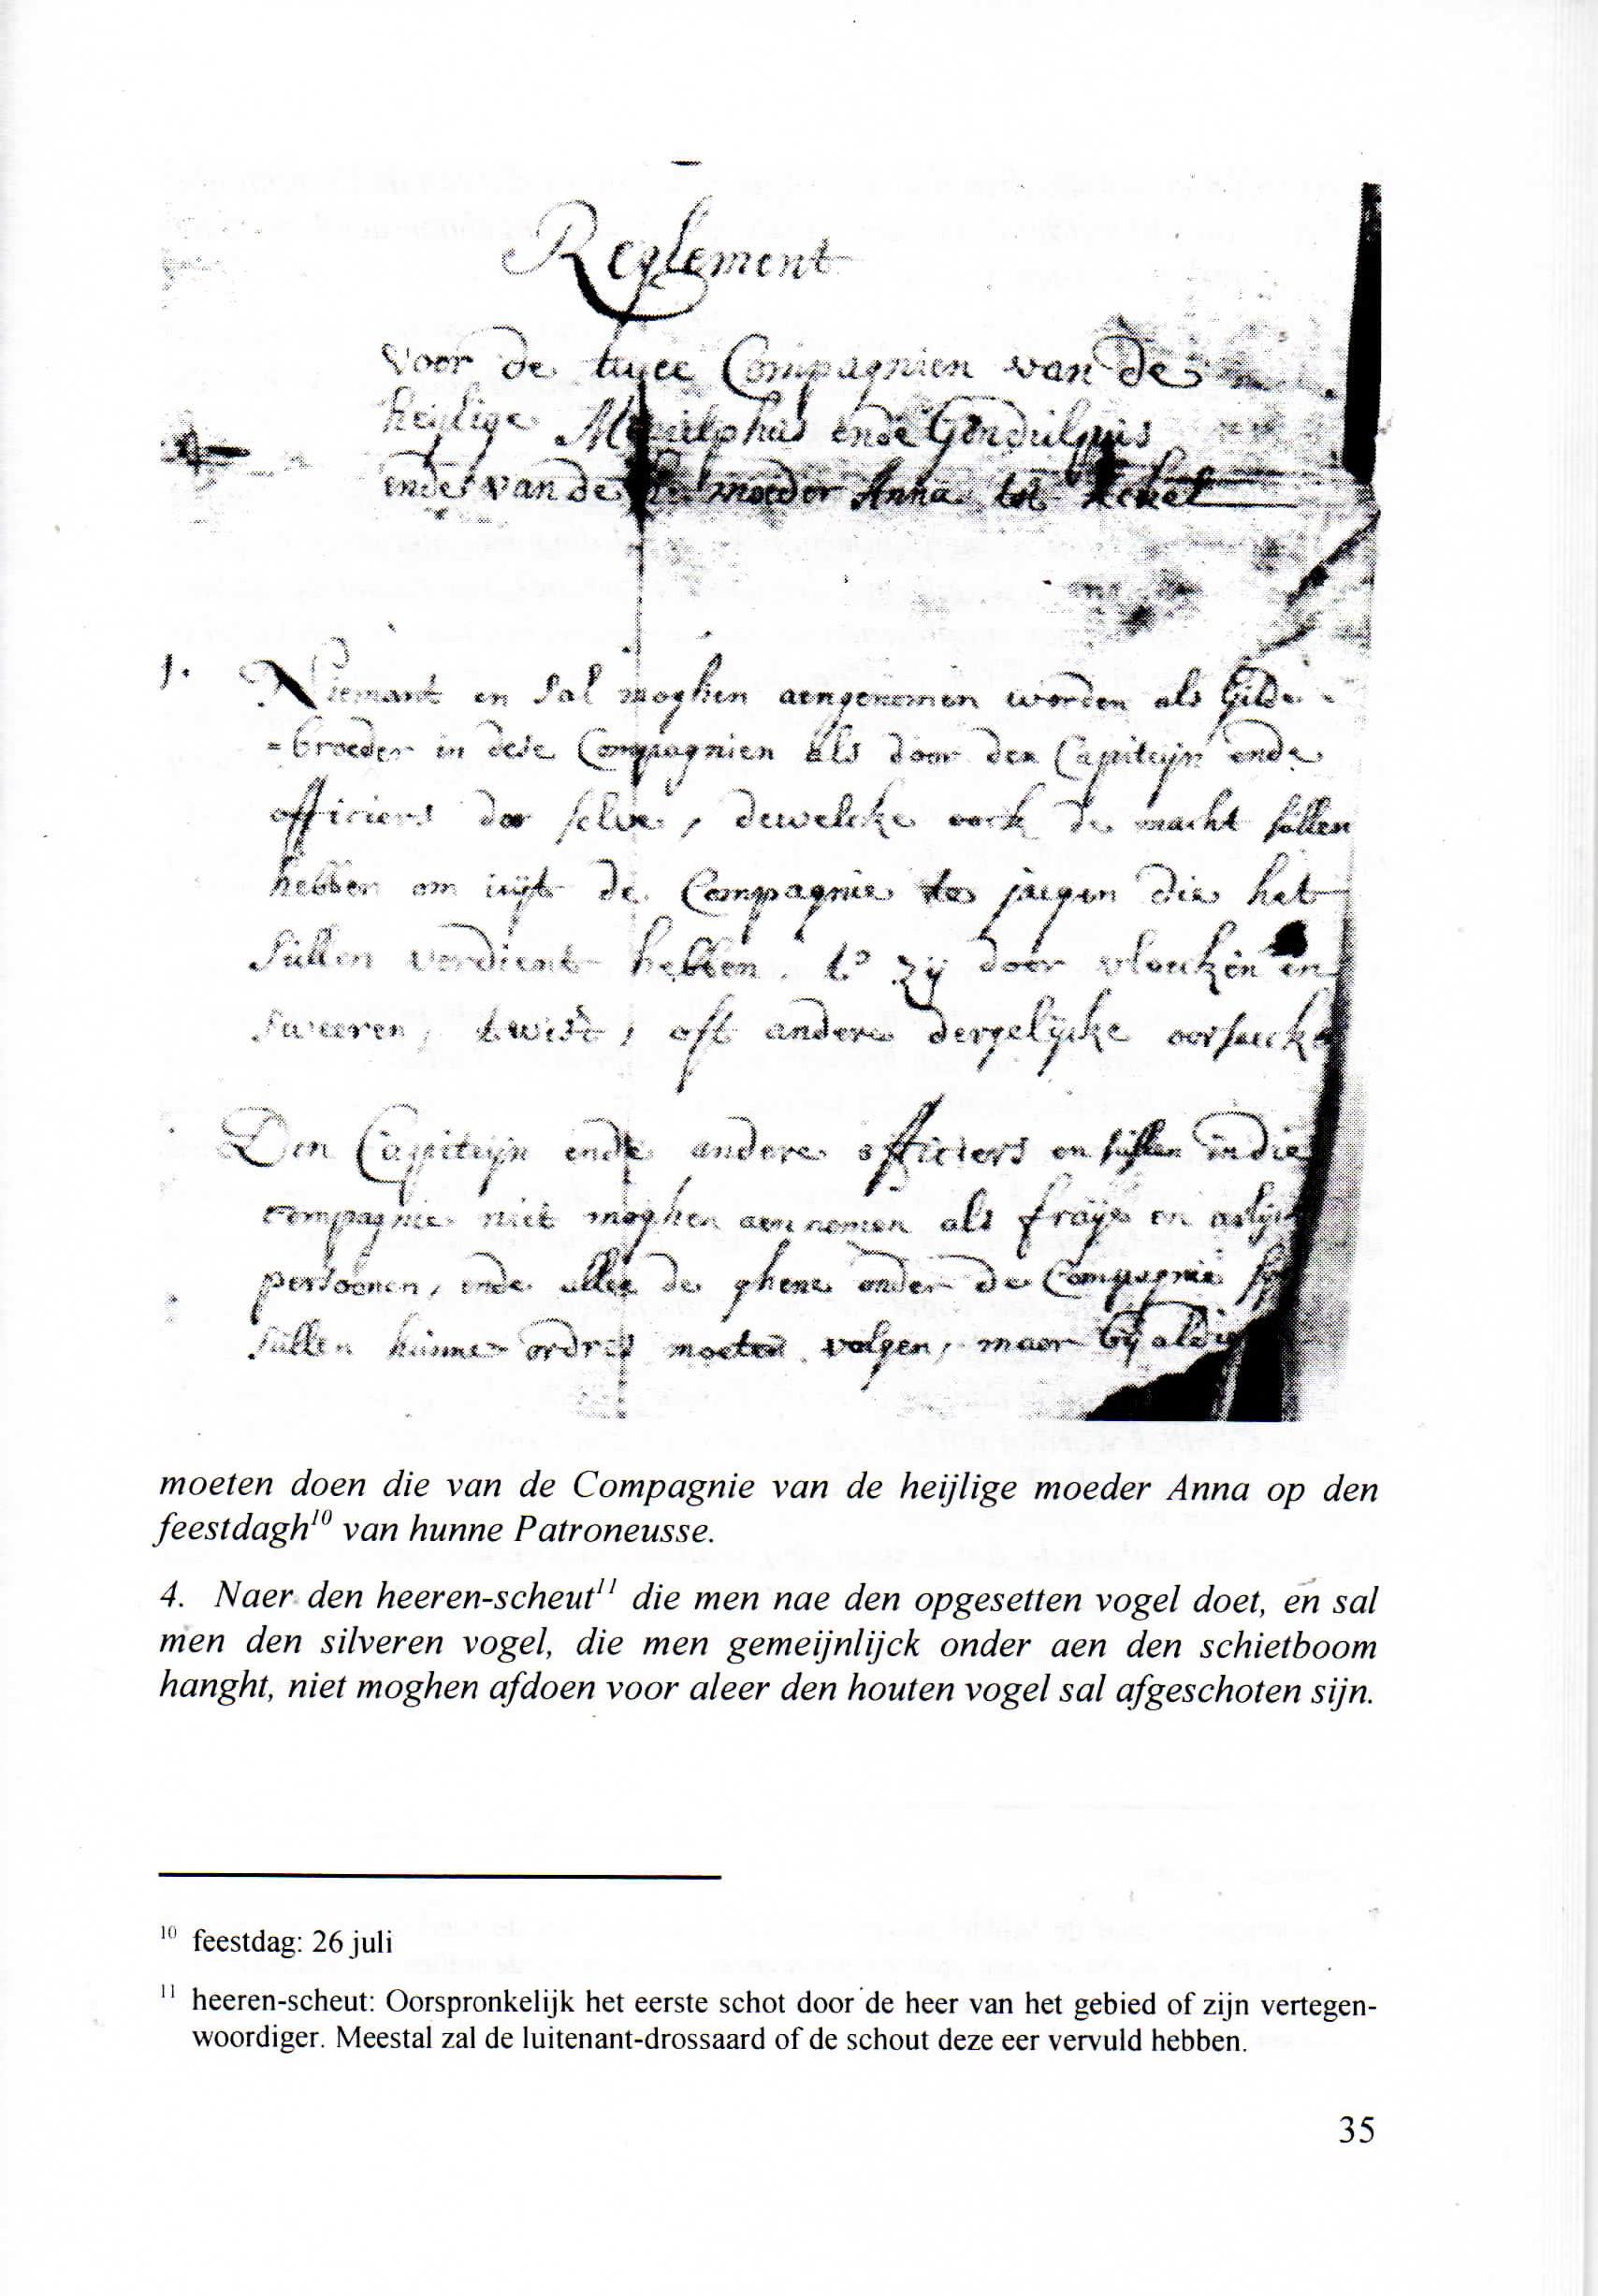 Reglement
voor de twee Compagnien van de
heylige Monulphus ende Gondulphus
ende van de moeder Anna tot
1. Niemant en sal moghen aengenomen worden als Gilde
=broeder in dese Compagnien als door den Capiteyn ende
officiers der selve, dewelcke oock de macht süllen
hebben om üyt de Compagnie te jaegen die het
süllen verdient hebben. t'zy door vloecken en
sweeren, twist, oft andere dergelycke oorsaecke
Den Capiteyn ende andere officiers en süllen in die
compagnie niet moghen aennemen als fraye en
persoonen, ende alle de ghene onder de Compagnie
süllen hünne ordres moeten volgen, maer by aldien
moeten doen die van de Compagnie van de heijlige moeder Anna op den
feestdagh10 van hunne Patroneusse.
4. Naer den heeren-scheut11 die men nae den opgesetten vogel doet, en sal
men den silveren vogel, die men gemeijnlijck onder aen den schietboom
hanght, niet moghen afdoen voor aleer den houten vogel sal afgeschoten sijn.
10 feestdag: 26 juli
11 heeren-scheut: Oorspronkelijk het eerste schot door de heer van het gebied of zijn vertegen-
woordiger. Meestal zal de luitenant-drossaard of de schout deze eer vervuld hebben.
35